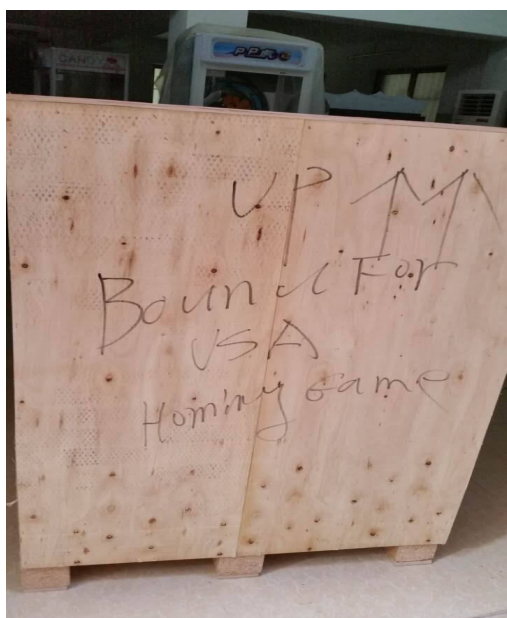 CANDY
UP
Bound For
USA
Hominy Game